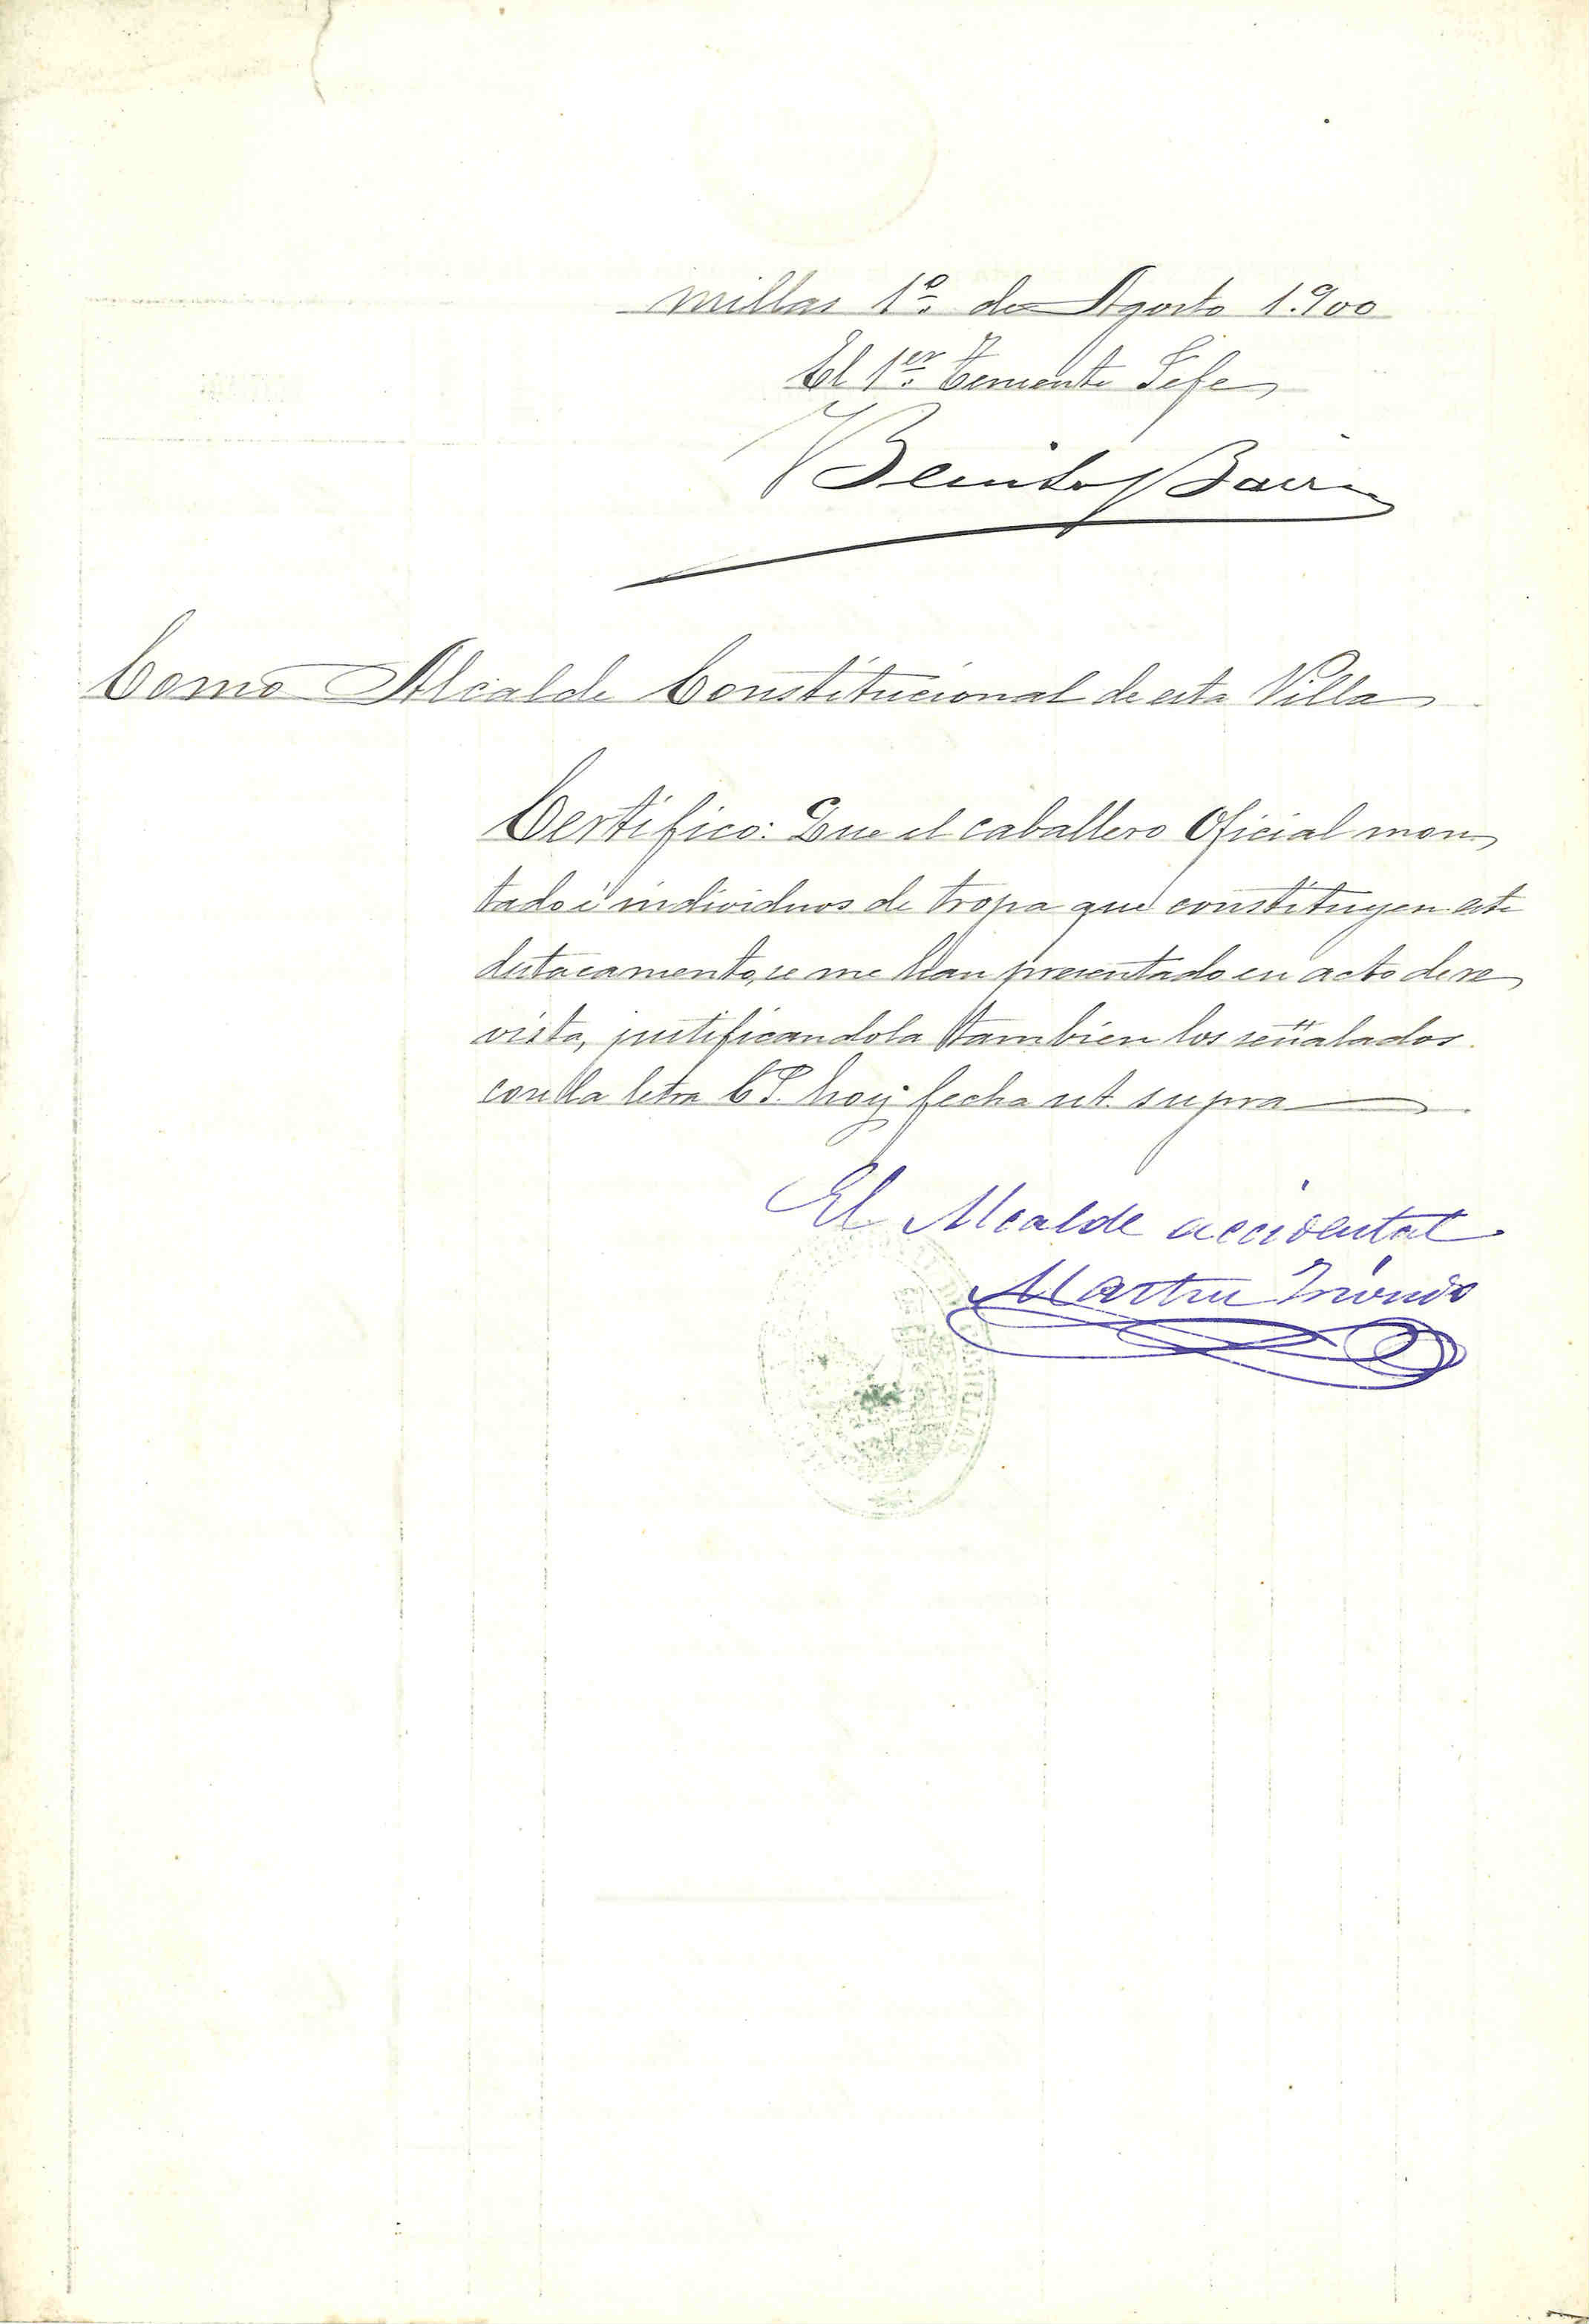 millas 1º de Agosto 1.900
El 1er. Teniente Jefe
Benito
Como Alcalde Constitucional de esta Villa
Certifico: Que el caballero Oficial mon
tado é individuos de tropa que constituyen este
destacamento, se me han presentado en acto de re
vista, justificandola tambien los señalados
con la letra C.P. hoy fecha ut supra
El Alcalde accidental
Martin